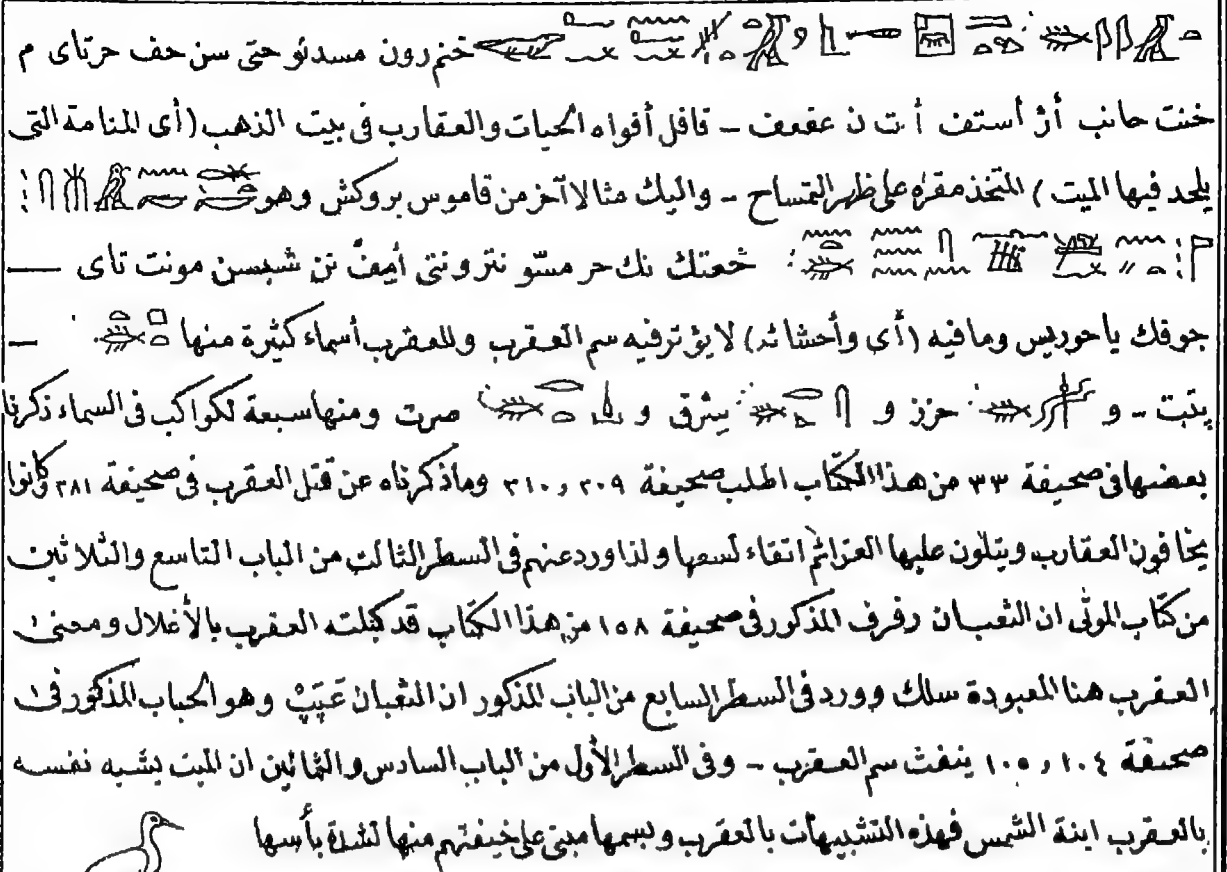 خنم رون مسدئو حتى سن حف حرتاى م
خنت حانب أژ أستفف أ.ت ن عقعف – قافل أفواه الحيات والعقارب فى بيت الذهب (أى المنامة التى
يلحد فيها الميت) المتخذ مقره على ظهر التمساح – واليك مثالا آخر من قاموس بروكش وهو
خعتك نك حر مسّو نترو نتى أمِفَّ نن شبسسن مونت تاى —
جوفك ياحوريس ومافيه (أى وأحشائه) لايؤثر فيه سم العقرب وللعقرب أسماء كثيرة منها —
پتبت – و حرزز و پثرق و صرت ومنها سبعة لكواكب فى السماء ذكرنا
بعضها فى صحيفة ٣٣ من هذا الكتاب اطلب صحيفة ٢٠٩ و ٣١٠ وماذكرناه عن قتل العقرب فى صحيفة ٢٨١ وكانوا
يخافون العقارب ويتلون عليها العزائم اتقاء لسعها ولذا ورد عنهم فى السطر الثالث من الباب التاسع والثلاثين
من كتاب الموتى ان الثعبان رفرف المذكور فى صحيفة ١٥٨ من هذا الكتاب قد كبلته العقرب بالأغلال ومعنى
العقرب هنا المعبودة سلك وورد فى السطر السابع من الباب المذكور ان الثعبان عَبَبْ وهو الحباب المذكور فى
صحيفة ١٠٤ و ١٠٥ ينفث سم العقرب – وفى السطر الأول من الباب السادس والثمانين ان الميت يشبه نفسه
بالعقرب ابنة الشمس فهذه التشبيهات بالعقرب وبسمها مبنى على خيفتهم منها لشدة بأسها